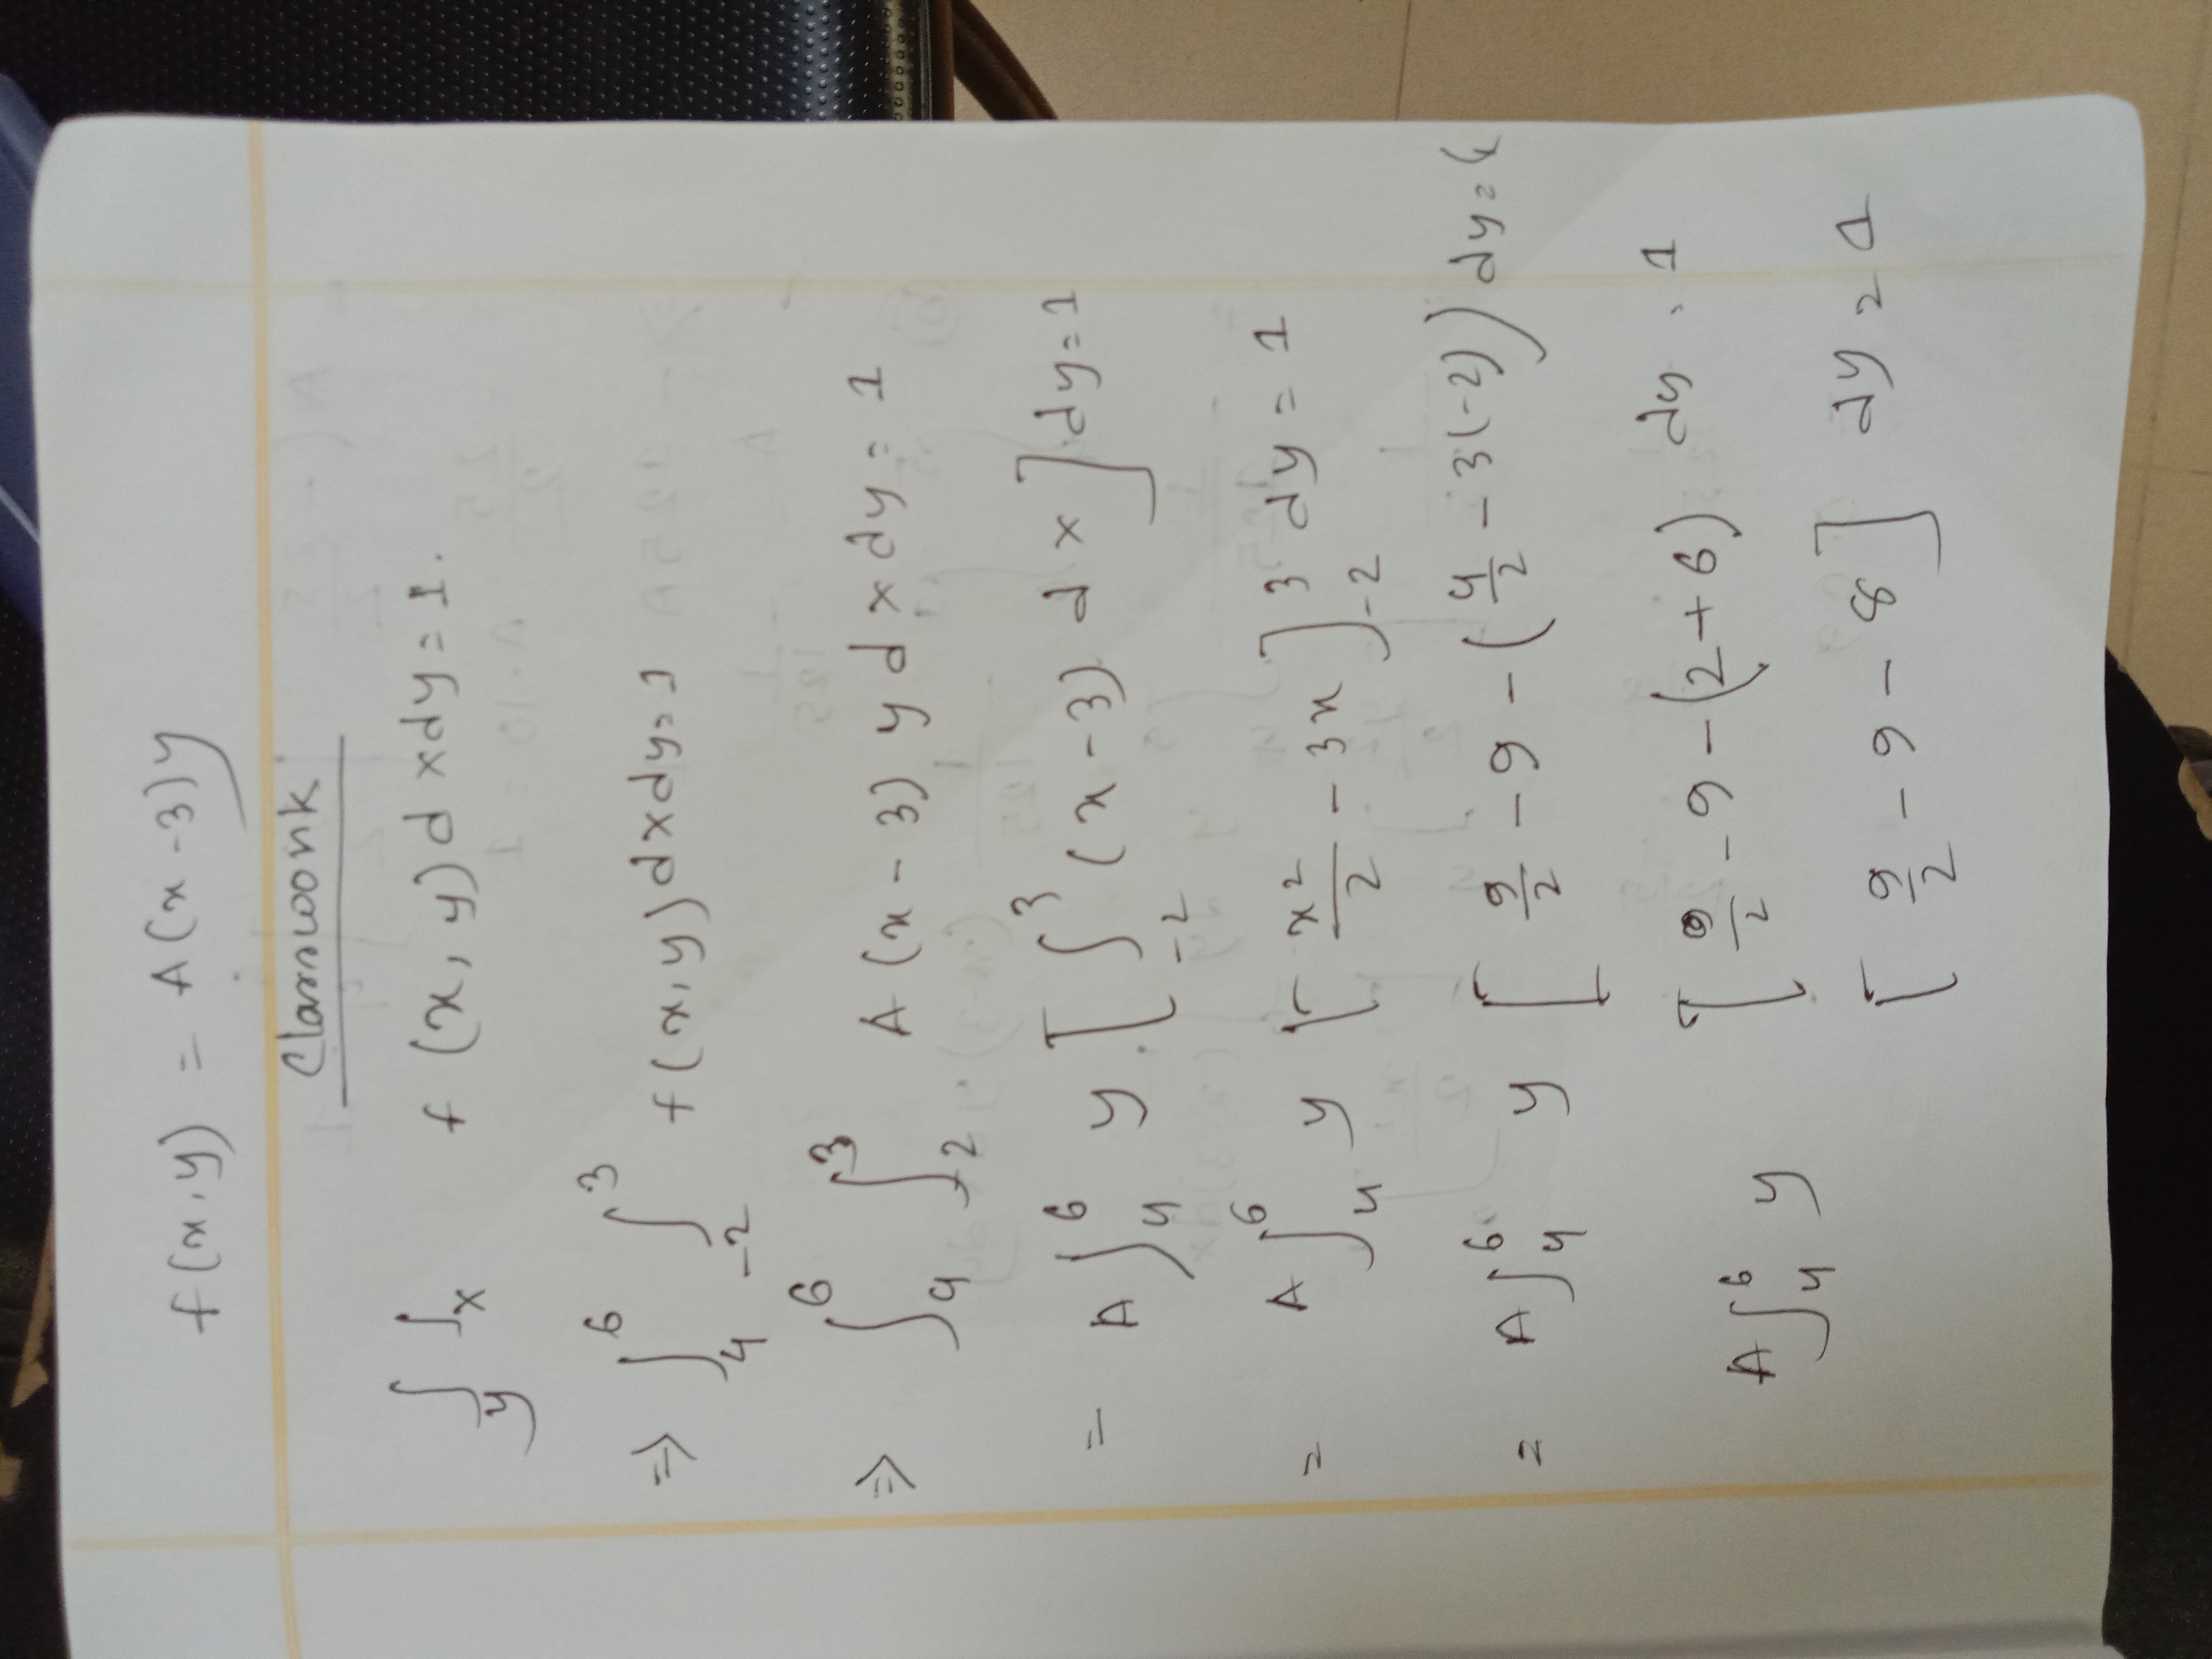 f(x,y) = A(x-3)y
Classwork
∫y ∫x f(x,y)dxdy=1.
⇒ ∫₄⁶ ∫₋₂³ f(x,y)dxdy=1
⇒ ∫₄⁶ ∫₋₂³ A(x-3)ydxdy=1
= A∫₄⁶ y [∫₋₂³ (x-3)dx]dy=1
= A∫₄⁶ y [x²/2 - 3x]₋₂³ dy=1
= A∫₄⁶ y [9/2 - 9 - (4/2 - 3(-2)) dy=1
A∫₄⁶ y [9/2 - 9 - (2+6) dy = 1
[9/2 - 9 - 8] dy = 1